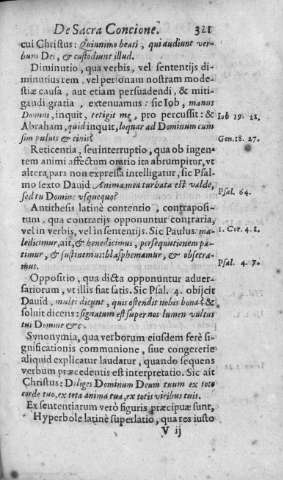 De Sacra Concione. 321
cui Christus: Quinimmo beati, qui audiunt ver-
bum Dei, & custodiunt illud.
Diminutio, qua verbis, vel sententijs di-
minutius rem, vel personam nostram mode-
stiæ causa, aut etiam persuadendi, & miti-
gandi gratia, extenuamus: sic Iob, manus
Domini, inquit, tetigit me, pro percussit: &
Iob 19. 21.
Abraham, quid inquit, loquar ad Dominum cum
sim puluis & cinis?
Gen. 18. 27.
Reticentia, seu interruptio, qua ob ingen-
tem animi affectum oratio ita abrumpitur, vt
altera pars non expressa intelligatur, sic Psal-
mo sexto Dauid Anima mea turbata est valde,
sed tu Domine vsquequo?
Psal. 64.
Antithesis latinè contentio, contraposi-
tum, qua contrarijs opponuntur contraria,
vel in verbis, vel in sententijs. Sic Paulus: ma-
ledicimur, ait, & benedicimus, persequutionem pa-
1. Cor. 4. 1.
timur, & sustinemus: blasphemamur, & obsecra-
mus.
Psal. 4. 7.
Oppositio, qua dicta opponuntur aduer-
sariorum, vt illis fiat satis. Sic Psal. 4. obijcit
Dauid, multi dicunt, quis ostendit nobis bona? &
soluit dicens: signatum est super nos lumen vultus
tui Domine &c.
Synonymia, qua verborum eiusdem ferè si-
gnificationis communione, siue congererie
aliquid explicatur laudatur, quando sequens
verbum præcedentis est interpretatio. Sic ait
Christus: Diliges Dominum Deum tuum ex toto
corde tuo, ex tota anima tua, ex totis viribus tuis.
Ex sententiarum verò figuris præcipuæ sunt,
Hyperbole latinè superlatio, qua res iusto
V ij